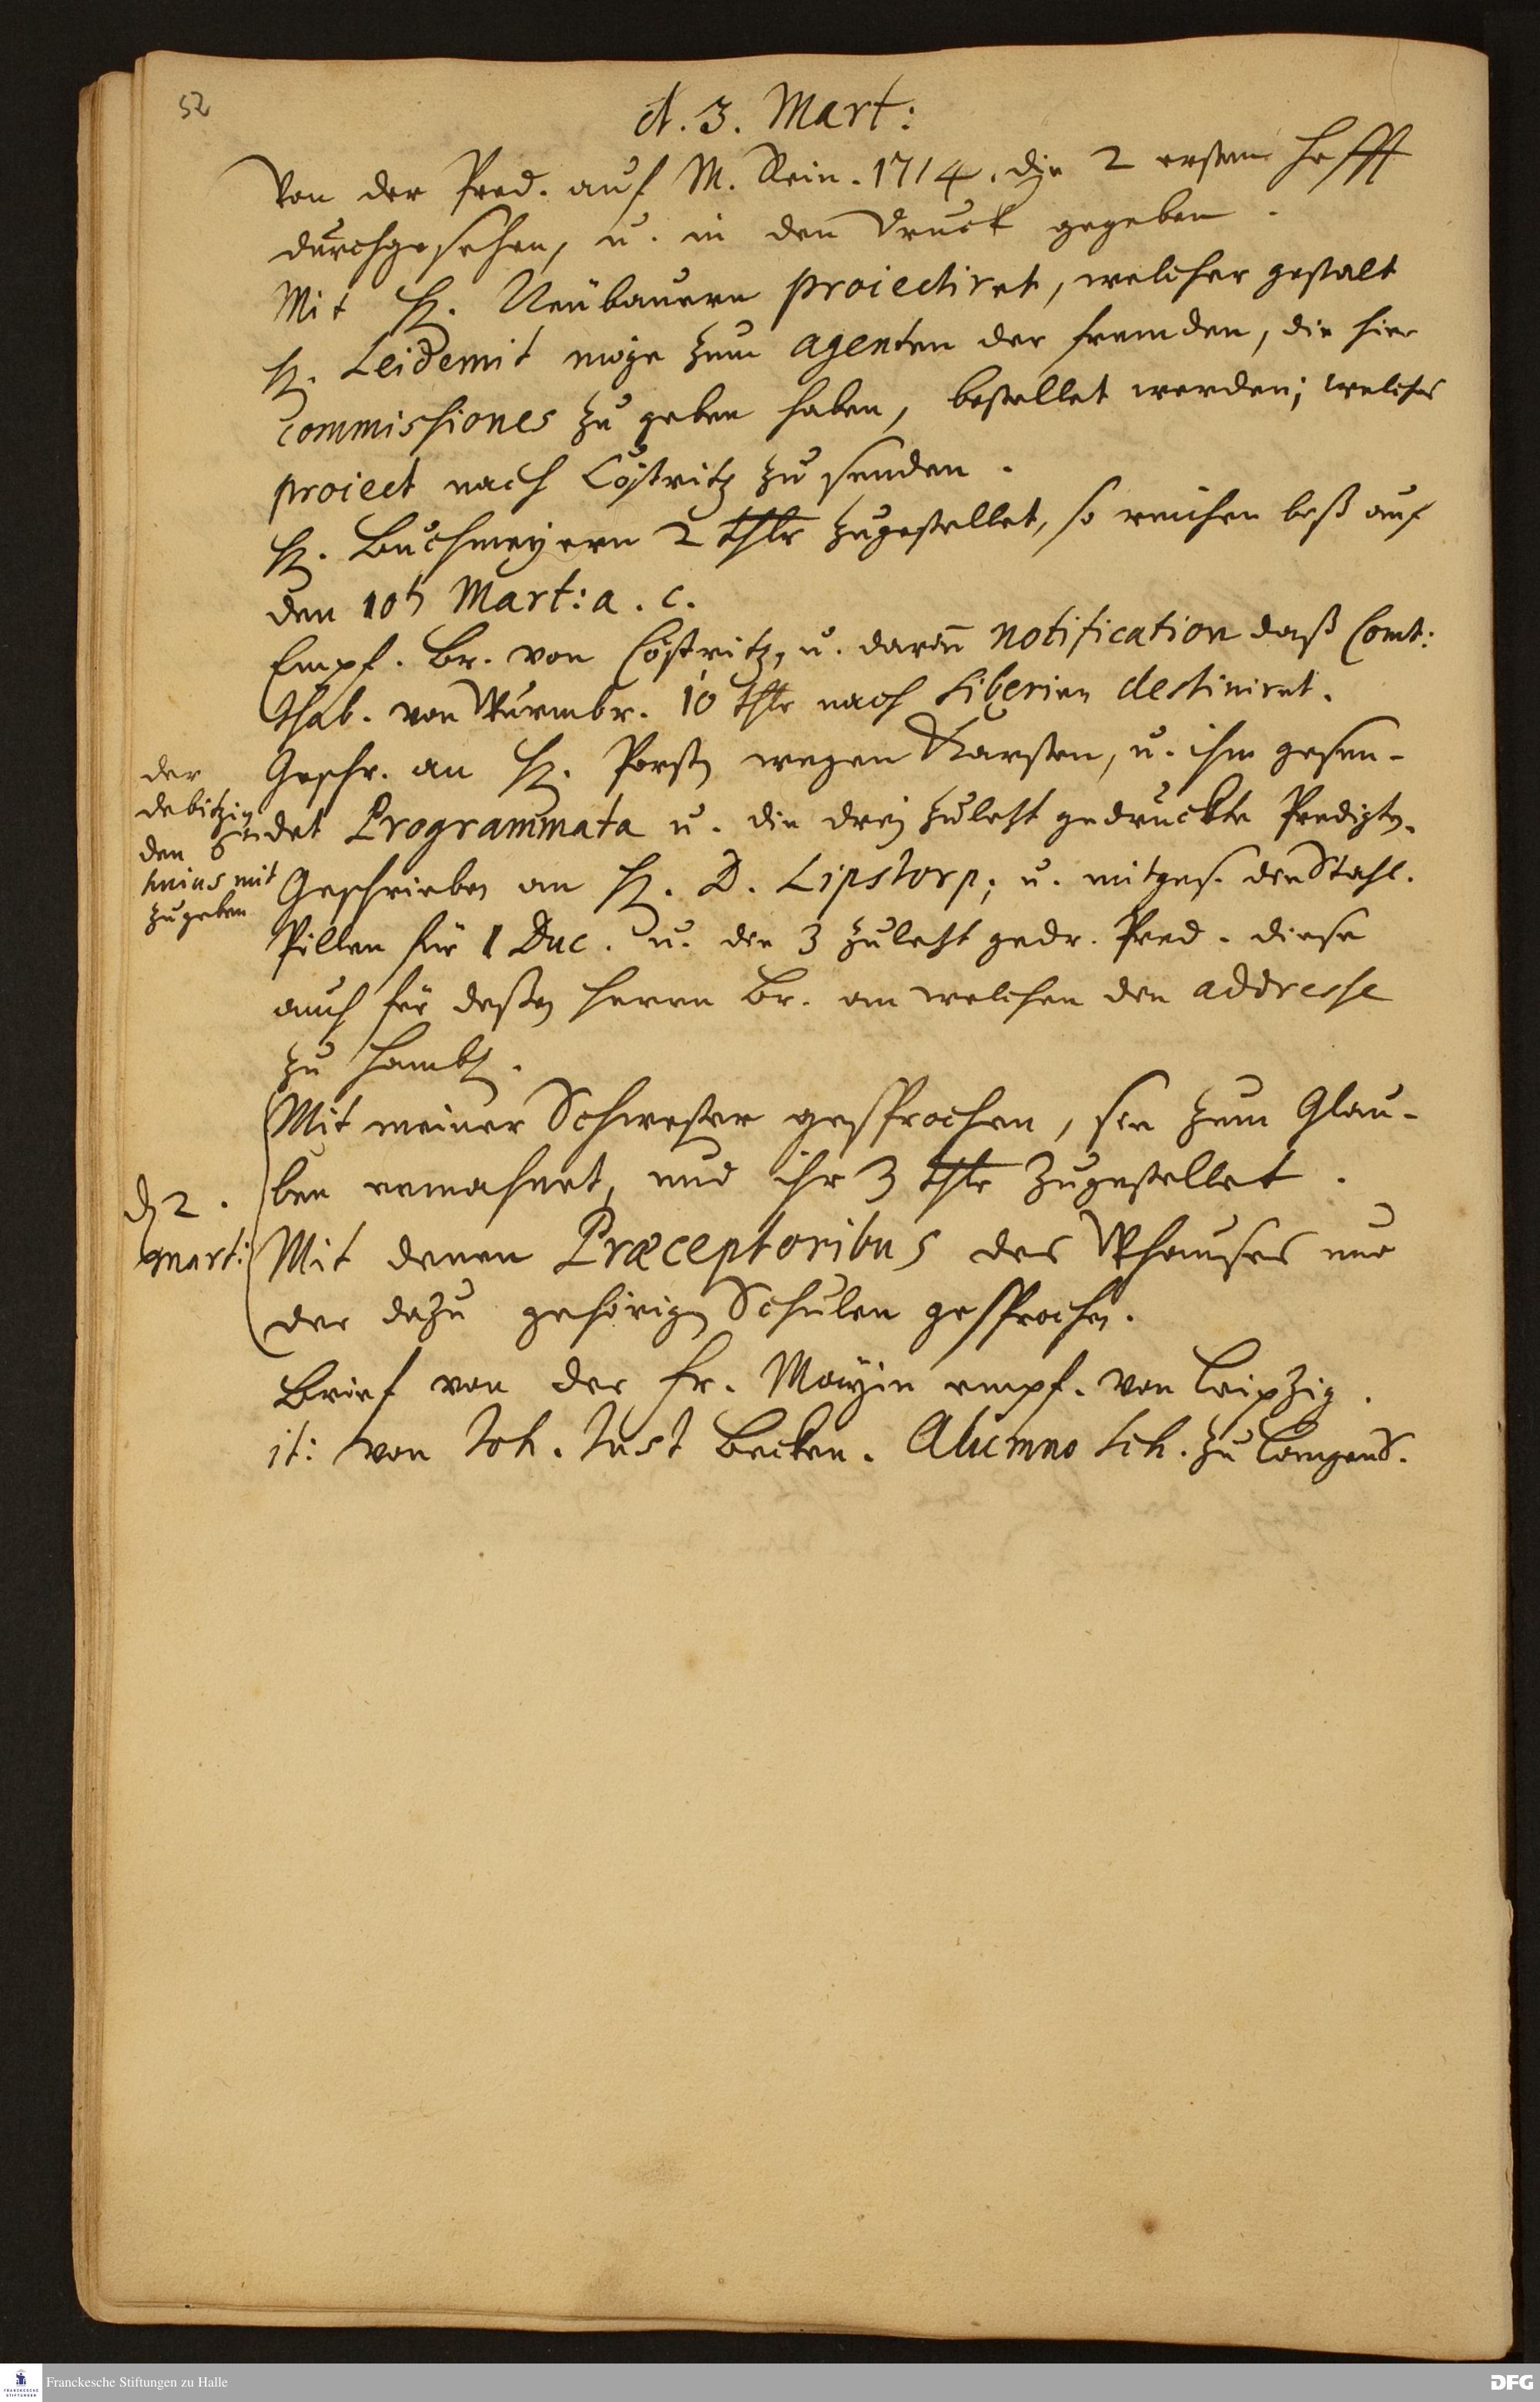 52
d. 3. Mart:
Von der Pred. auf M. Rein. 1714. die 2 ersten
durchgesehen, u. in den Druck gegeben.
Mit H. Neübauern proiectiret, welcher gestalt
H. Leidemit möge zum agenten der fremden, die hier
commissiones zu geben haben, bestellet werden; welches
proiect nach Cöstritz zu senden.
H. Buchmeyern 2 thlr zugestellet, so reichen biß auf
den 10t Mart: a. c.
Empf. Br. von Cöstritz, u. darin notification daß Comt:
von Wurmbr. 10 thlr nach Siberien destiniret.
Geschr. an H. Porst wegen Karsten, u. ihm gesen-
det Programmata u. die drey zuletzt gedruckte Predigten.
der
den
mit
zugeben
Geschrieben an H. D. Lipstorp; u. mitges. den Stahl.
Pillen für 1 Duc. u. die 3 zuletzt gedr. Pred. diese
auch für deßen Herrn Br. an welchen den addresse
zu Hamb.
Mit meiner Schwester gesprochen, sie zum Glau-
ben ermahnet, und ihr 3 thlr zugestellet.
d 2.
Mart:
Mit denen Præceptoribus des Whauses und
der dazu gehörigen Schulen gesprochen.
Brief von der Fr. Mayin empf. von Leipzig.
it: von Joh. Just Becken. Alumno Sch. zu Langens.
Franckesche Stiftungen zu Halle
FRANCKESCHE STIFTUNGEN
DFG